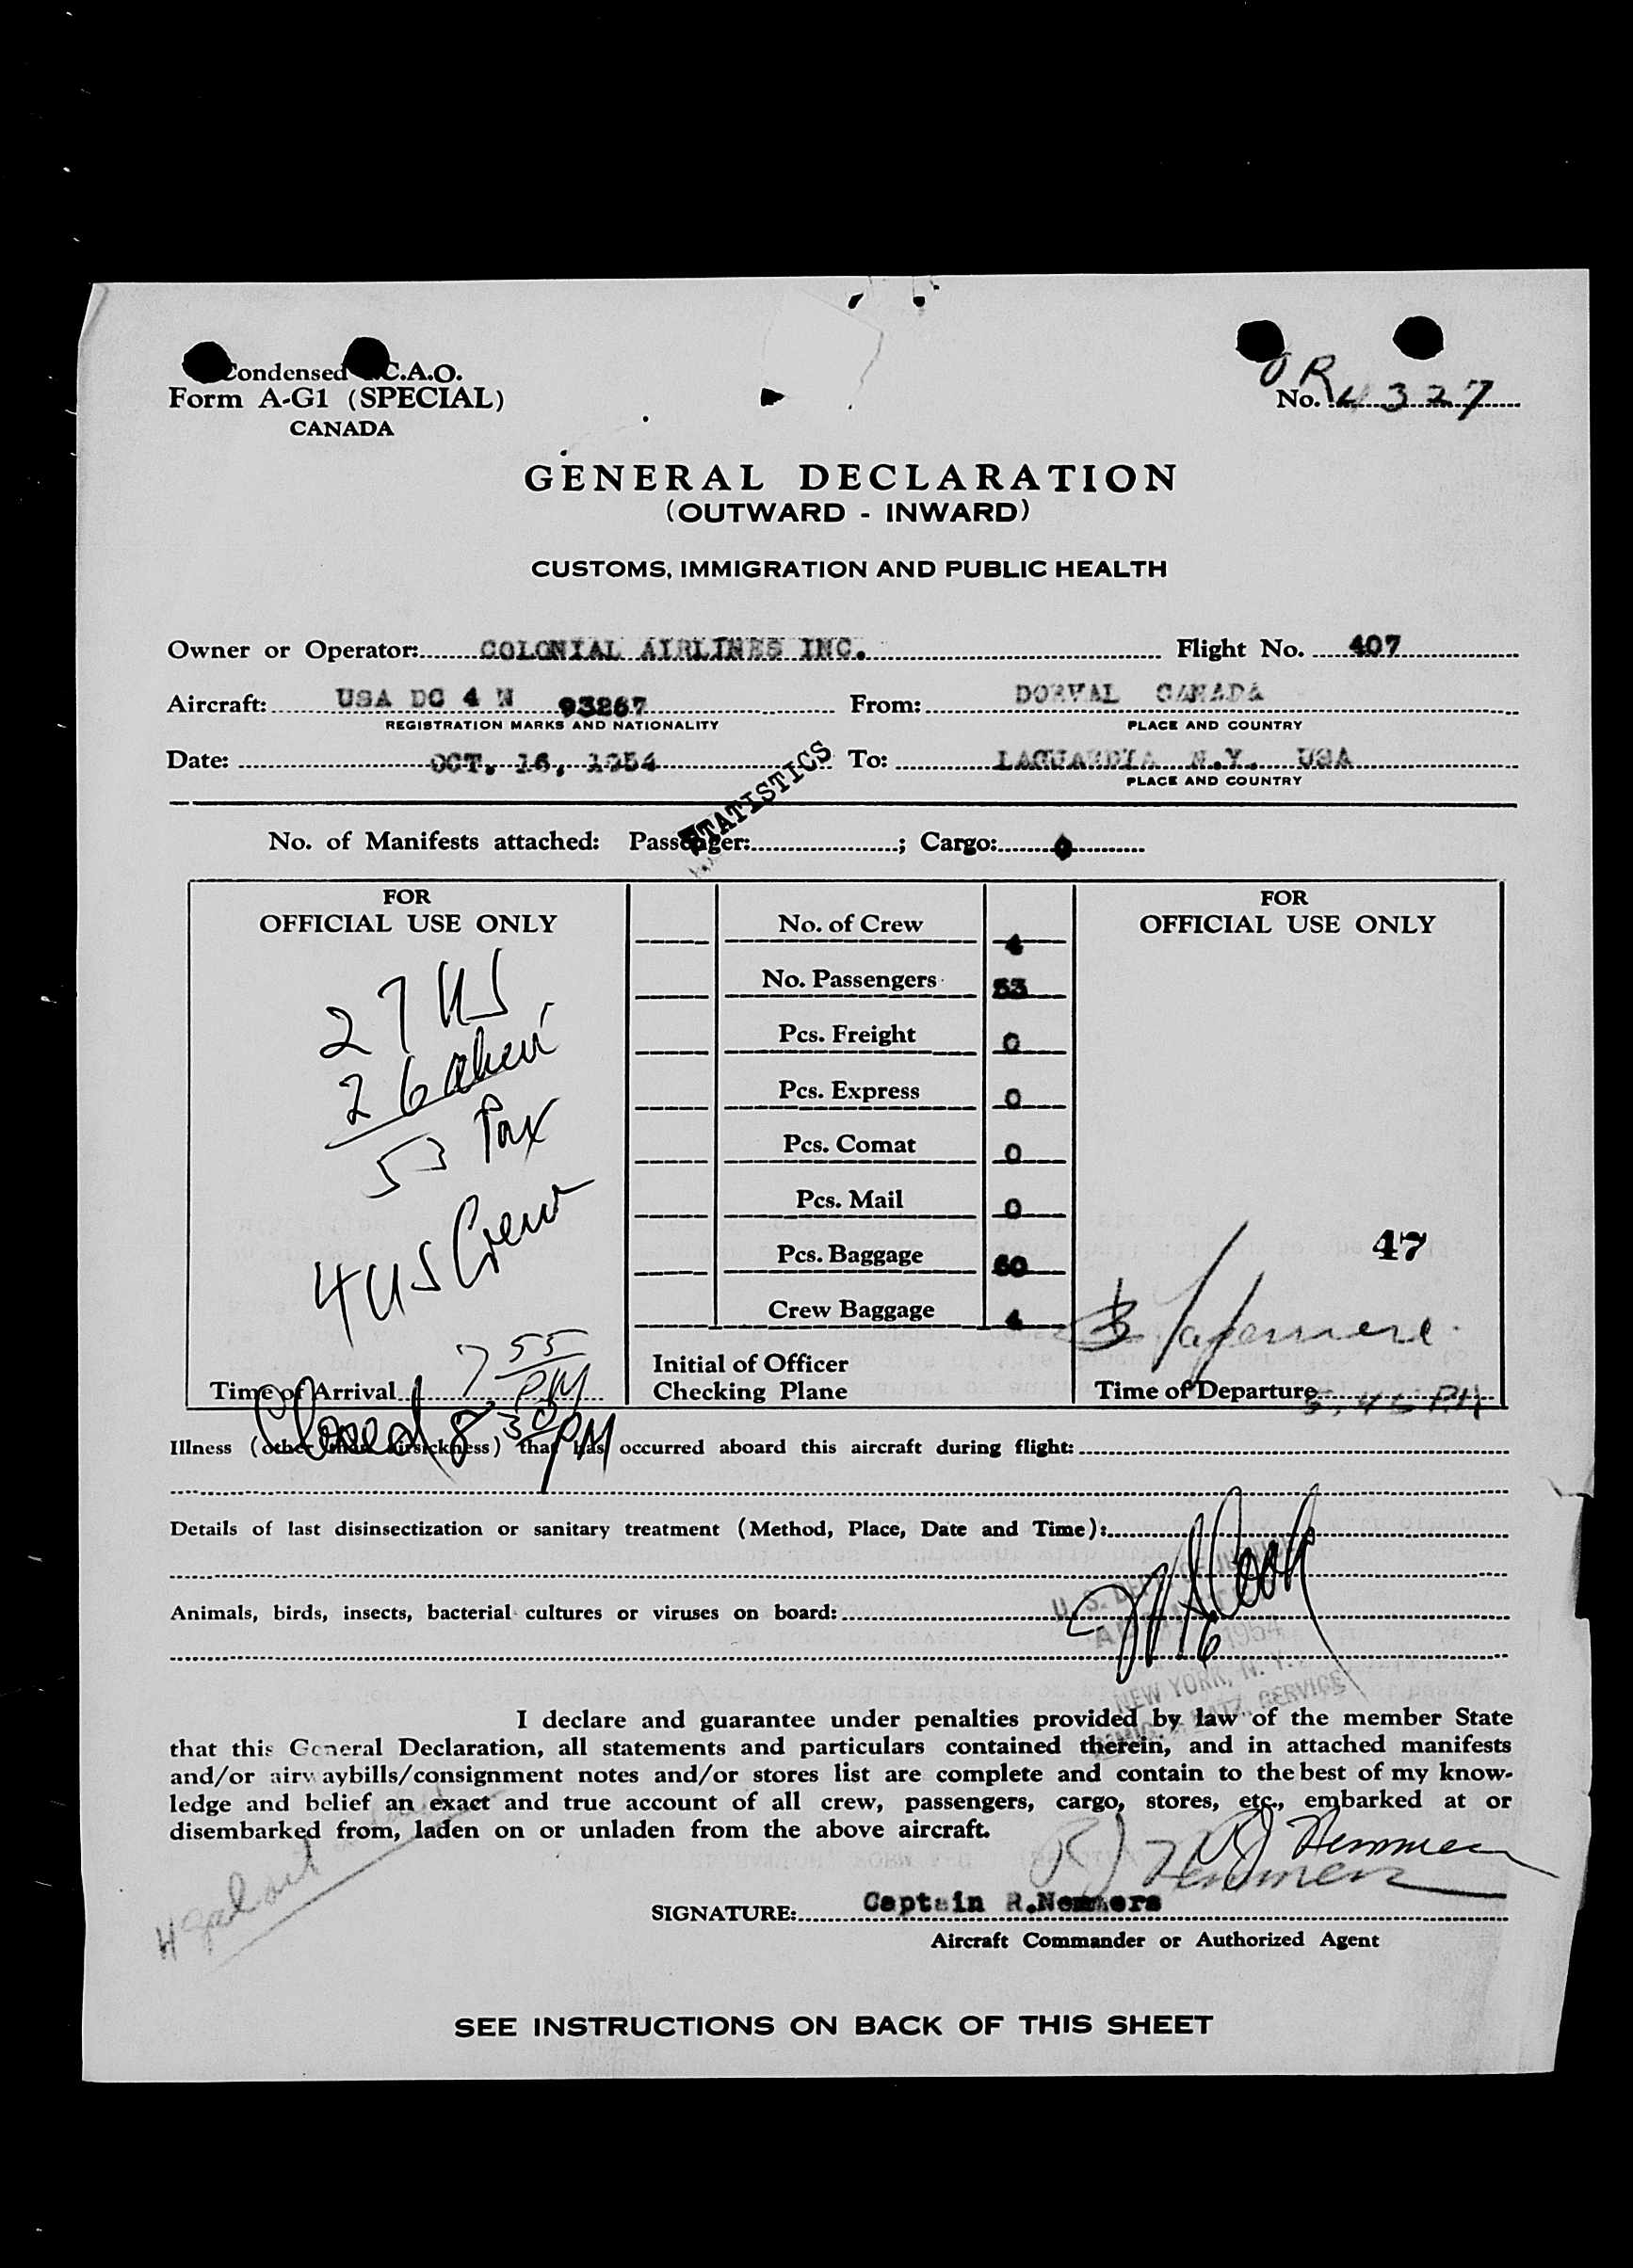 Condensed C.A.O.
Form A-G1 (SPECIAL)
CANADA
OR
No. 4327
GENERAL DECLARATION
(OUTWARD - INWARD)
CUSTOMS, IMMIGRATION AND PUBLIC HEALTH
Owner or Operator: COLONIAL AIRLINES INC. Flight No. 407
Aircraft: USA DC 4 N 93267 From: DORVAL CANADA
REGISTRATION MARKS AND NATIONALITY PLACE AND COUNTRY
Date: OCT. 16, 1954 To: LAGUARDIA N.Y. USA
PLACE AND COUNTRY
STATISTICS
No. of Manifests attached: Passenger: ; Cargo: 0
FOR
OFFICIAL USE ONLY
27 US
26 alien
53 Pax
4 US Crew
Time of Arrival 7 55 PM
Closed 8,30 PM
No. of Crew 4
No. Passengers 53
Pcs. Freight 0
Pcs. Express 0
Pcs. Comat 0
Pcs. Mail 0
Pcs. Baggage 60
Crew Baggage 4
Initial of Officer
Checking Plane
FOR
OFFICIAL USE ONLY
47
Time of Departure 5,45 PM
Illness (other than airsickness) that has occurred aboard this aircraft during flight:
Details of last disinsectization or sanitary treatment (Method, Place, Date and Time):
Animals, birds, insects, bacterial cultures or viruses on board:
U. S. DEPT. OF JUSTICE
16 1954
NEW YORK, N. Y.
IMMIG. & NATZ. SERVICE
I declare and guarantee under penalties provided by law of the member State
that this General Declaration, all statements and particulars contained therein, and in attached manifests
and/or airwaybills/consignment notes and/or stores list are complete and contain to the best of my know-
ledge and belief an exact and true account of all crew, passengers, cargo, stores, etc., embarked at or
disembarked from, laden on or unladen from the above aircraft.
SIGNATURE: Captain R.Nemmers
Aircraft Commander or Authorized Agent
SEE INSTRUCTIONS ON BACK OF THIS SHEET